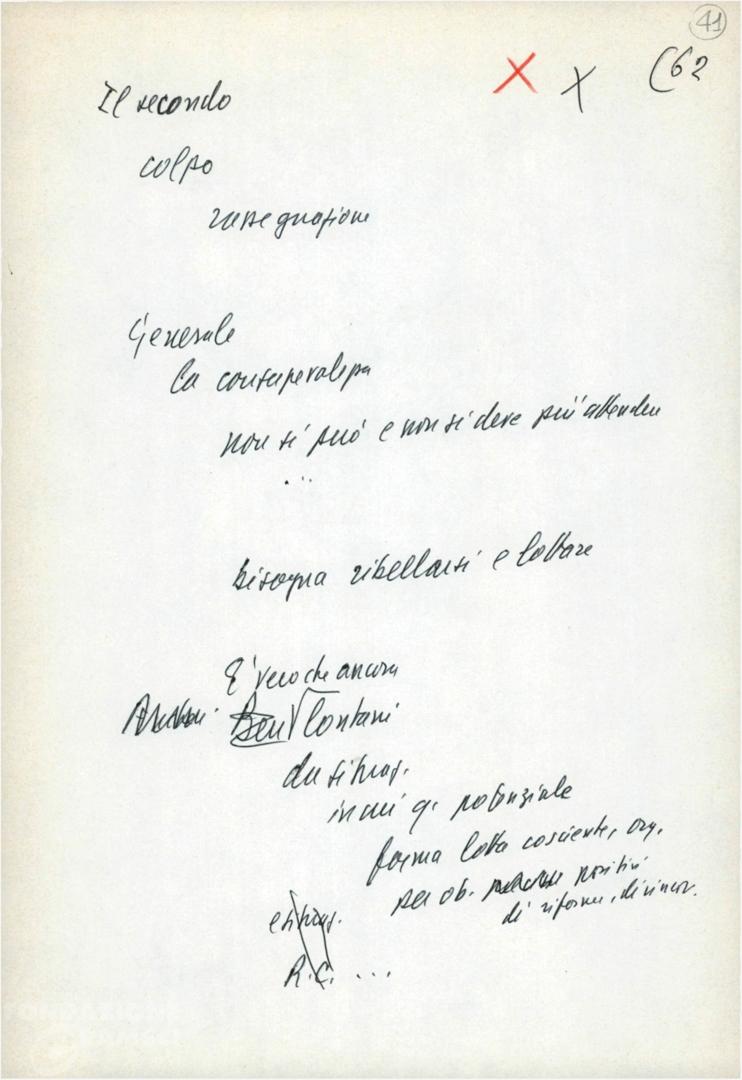 41
X X (62
Il secondo
colpo
rassegnazione
Generale
la consapevolezza
non si può e non si deve più attendere
...
bisogna ribellarsi e lottare
E' vero che ancora
Ben lontani
da situaz.
in cui q. potenziale
forma lotta cosciente, org.
per ob. positivi
di riforme, di rinnov.
e situaz.
R.C. ...
FONDAZIONE
GRAMSCI